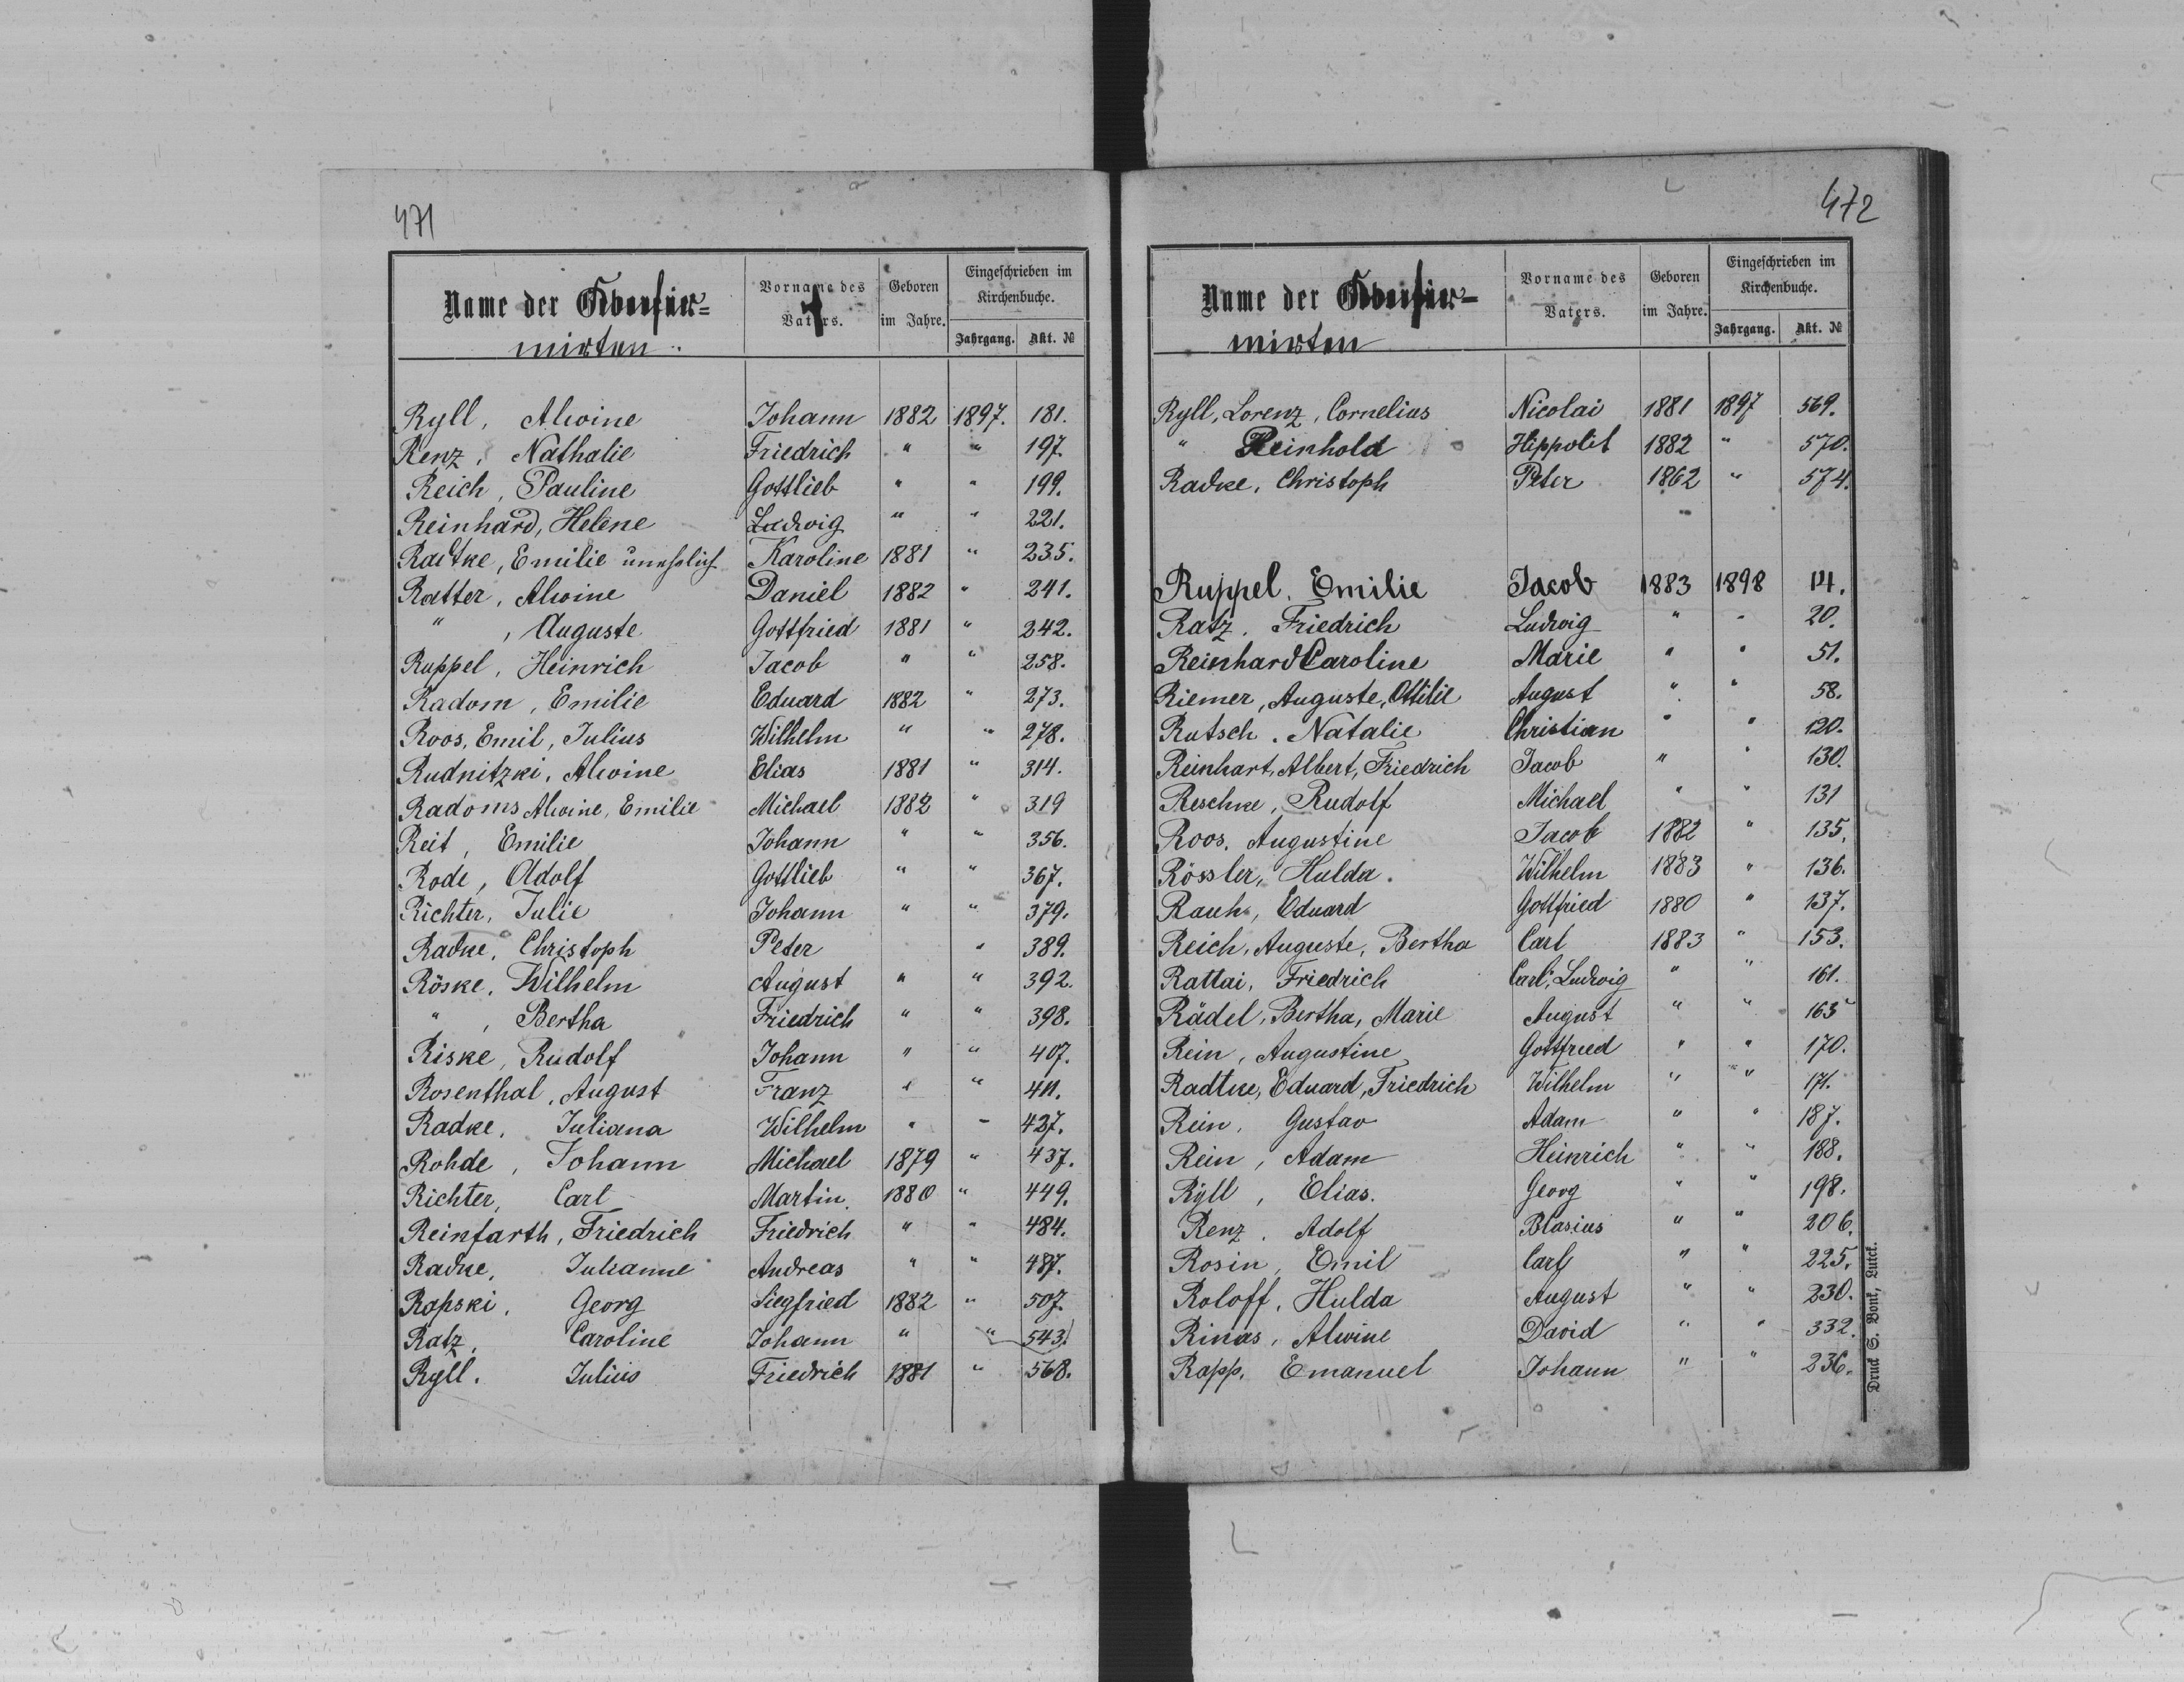 471
Name der Confir=
mirten.
Vorname des Vaters.
Geboren im Jahre.
Eingeschrieben im Kirchenbuche.
Jahrgang. Akt. №
Ryll, Alwine Johann 1882 1897. 181.
Renz, Nathalie Friedrich " " 197.
Reich, Pauline Gottlieb " " 199.
Reinhard, Helene Ludwig " " 221.
Radtke, Emilie unehelich Karoline 1881 " 235.
Ratter, Alwine Daniel 1882 " 241.
" , Auguste Gottfried 1881 " 242.
Ruppel, Heinrich Jacob " " 258.
Radom, Emilie Eduard 1882 " 273.
Roos, Emil, Julius Wilhelm " " 278.
Rudnitzki, Alwine Elias 1881 " 314.
Radoms Alwine, Emilie Michael 1882 " 319
Reit, Emilie Johann " " 356.
Rode, Adolf Gottlieb " " 367.
Richter, Julie Johann " " 379.
Radke, Christoph Peter " 389.
Röske, Wilhelm August " " 392.
" , Bertha Friedrich " " 398.
Riske, Rudolf Johann " " 407.
Rosenthal, August Franz " " 411.
Radke, Juliana Wilhelm " " 427.
Rohde, Johann Michael 1879 " 437.
Richter, Carl Martin. 1880 " 449.
Reinfarth, Friedrich Friedrich " " 484.
Radke, Julianne Andreas " " 487.
Rapski, Georg Siegfried 1882 " 507.
Ratz, Caroline Johann " " 543.
Ryll. Julius Friedrich 1881 " 568.
472
Name der Confir=
mirten
Vorname des Vaters.
Geboren im Jahre.
Eingeschrieben im Kirchenbuche.
Jahrgang. Akt. №
Ryll, Lorenz, Cornelius Nicolai 1881 1897 569.
" Reinhold Hippolit 1882 " 570.
Radke, Christoph Peter 1862 " 574.
Ruppel. Emilie Jacob 1883 1898 14.
Ratz, Friedrich Ludwig " " 20.
Reinhard Caroline Marie " " 51.
Riemer, Auguste, Ottilie August " " 58.
Rutsch. Natalie Christian " " 120.
Reinhart, Albert, Friedrich Jacob " " 130.
Reschke, Rudolf Michael " " 131
Roos, Augustine Jacob 1882 " 135.
Rössler, Hulda. Wilhelm 1883 " 136.
Rauh, Eduard Gottfried 1880 " 137.
Reich, Auguste, Bertha Carl 1883 " 153.
Rattai, Friedrich Carl, Ludwig " " 161.
Rädel, Bertha, Marie August " " 163
Rein, Augustine Gottfried " " 170.
Radtke, Eduard, Friedrich Wilhelm " " 171.
Rein, Gustav Adam " " 187.
Rein, Adam Heinrich " " 188.
Ryll, Elias. Georg " " 198.
Renz, Adolf Blasius " " 206.
Rosin, Emil Carl " " 225.
Roloff, Hulda August " " 230.
Rinas, Alwine David " " 332.
Rapp, Emanuel Johann " " 236.
Druck S. Bonk, Lutck.